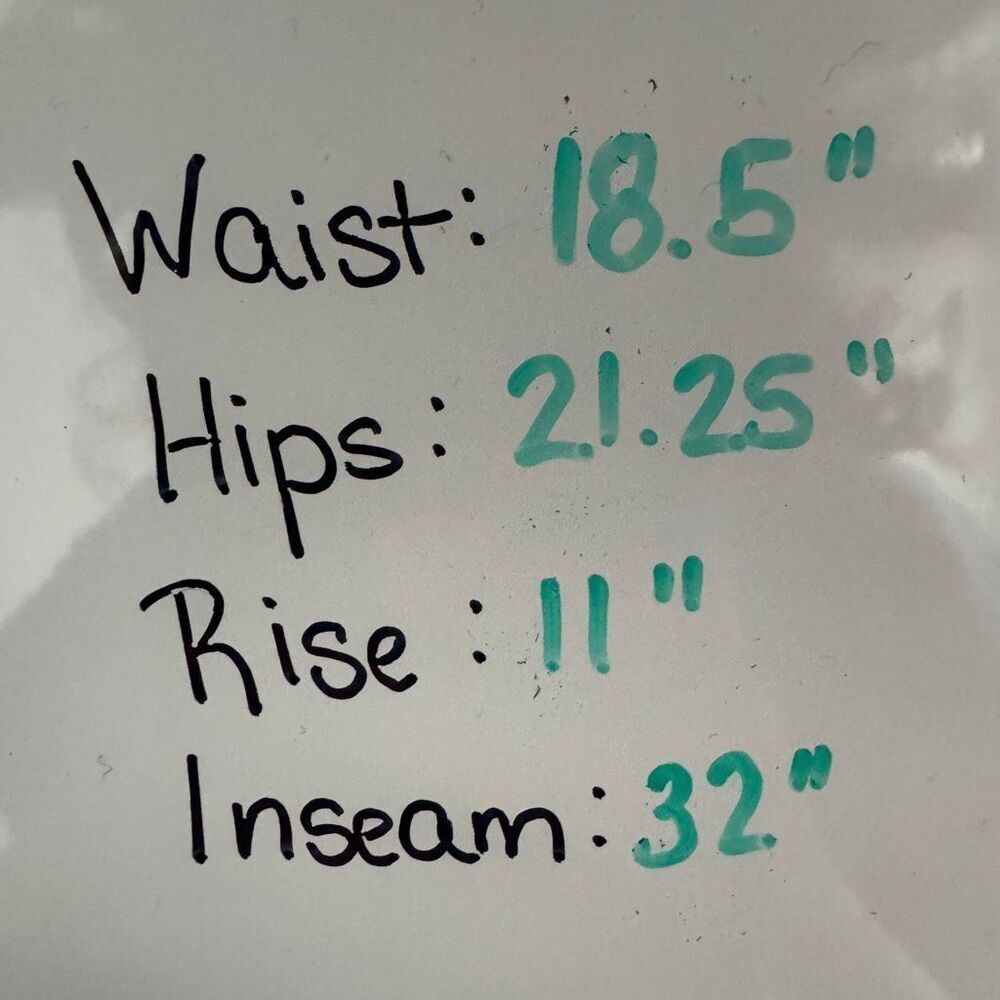 Waist: 18.5"
Hips: 21.25"
Rise: 11"
Inseam: 32"